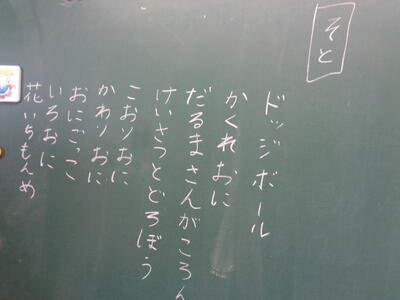 そと
ドッジボール
かくれおに
だるまさんがころん
けいさつとどろぼう
こおりおに
かわりおに
おにごっこ
いろおに
花いちもんめ